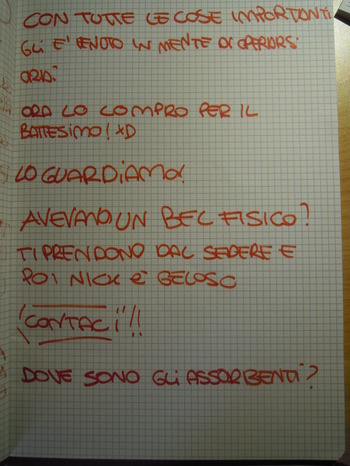 CON TUTTE LE COSE IMPORTANTI
GLI E' VENUTO IN MENTE DI OPERARSI
ORA?
ORA LO COMPRO PER IL
BATTESIMO! XD
LO GUARDIAMO!
AVEVANO UN BEL FISICO?
TI PRENDONO DAL SEDERE E
POI NICK È GELOSO
"CONTACI"!!
DOVE SONO GLI ASSORBENTI?